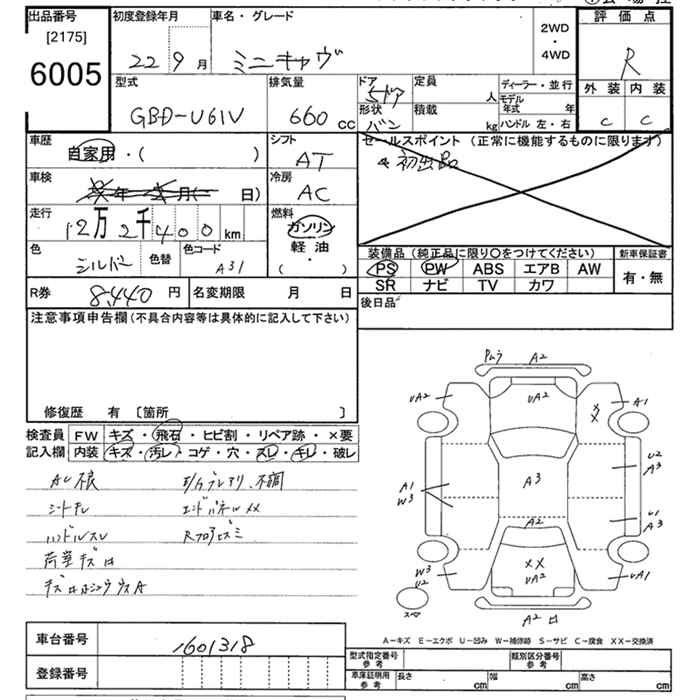 出品番号
[2175]
6005
初度登録年月
22 9月
車名・グレード
ミニキャヴ
2WD
・
4WD
評価点
R
外装 内装
C C
型式
GBD-U61V
排気量
660 cc
ドア
5ドア
形状
バン
定員
人
積載
kg
ディーラー・並行
モデル年式 年
ハンドル 左・右
車歴
自家用・( )
シフト
AT
セールスポイント(正常に機能するものに限ります)
初出品
車検
年 月( 日)
冷房
AC
走行
12万2千400km
燃料
ガソリン
軽油
( )
色
シルバー
色替
色コード
A31
装備品(純正品に限り〇をつけてください)
PS PW ABS エアB AW
SR ナビ TV カワ
新車保証書
有・無
R券 8,440円
名変期限 月 日
後日品
注意事項申告欄(不具合内容等は具体的に記入して下さい)
修復歴 有 〔箇所 〕
検査員記入欄
FW キズ・飛石・ヒビ割・リペア跡・×要
内装 キズ・汚レ・コゲ・穴・スレ・キレ・破レ
シートキレ エンドパネルXX
ハンドルスレ
荷室キズ
A2
UA2 UA2 A1
XX
A1
W3
A3
U2
A3
U1
A3
A2
XX
UA2
W3
U2
UA1
スペア
A2
A－キズ E－エクボ U－凹み W－補修跡 S－サビ C－腐食 XX－交換済
車台番号
1601318
登録番号
型式指定番号
参考
類別区分番号
参考
車庫証明用
参考
長さ cm 幅 cm 高さ cm